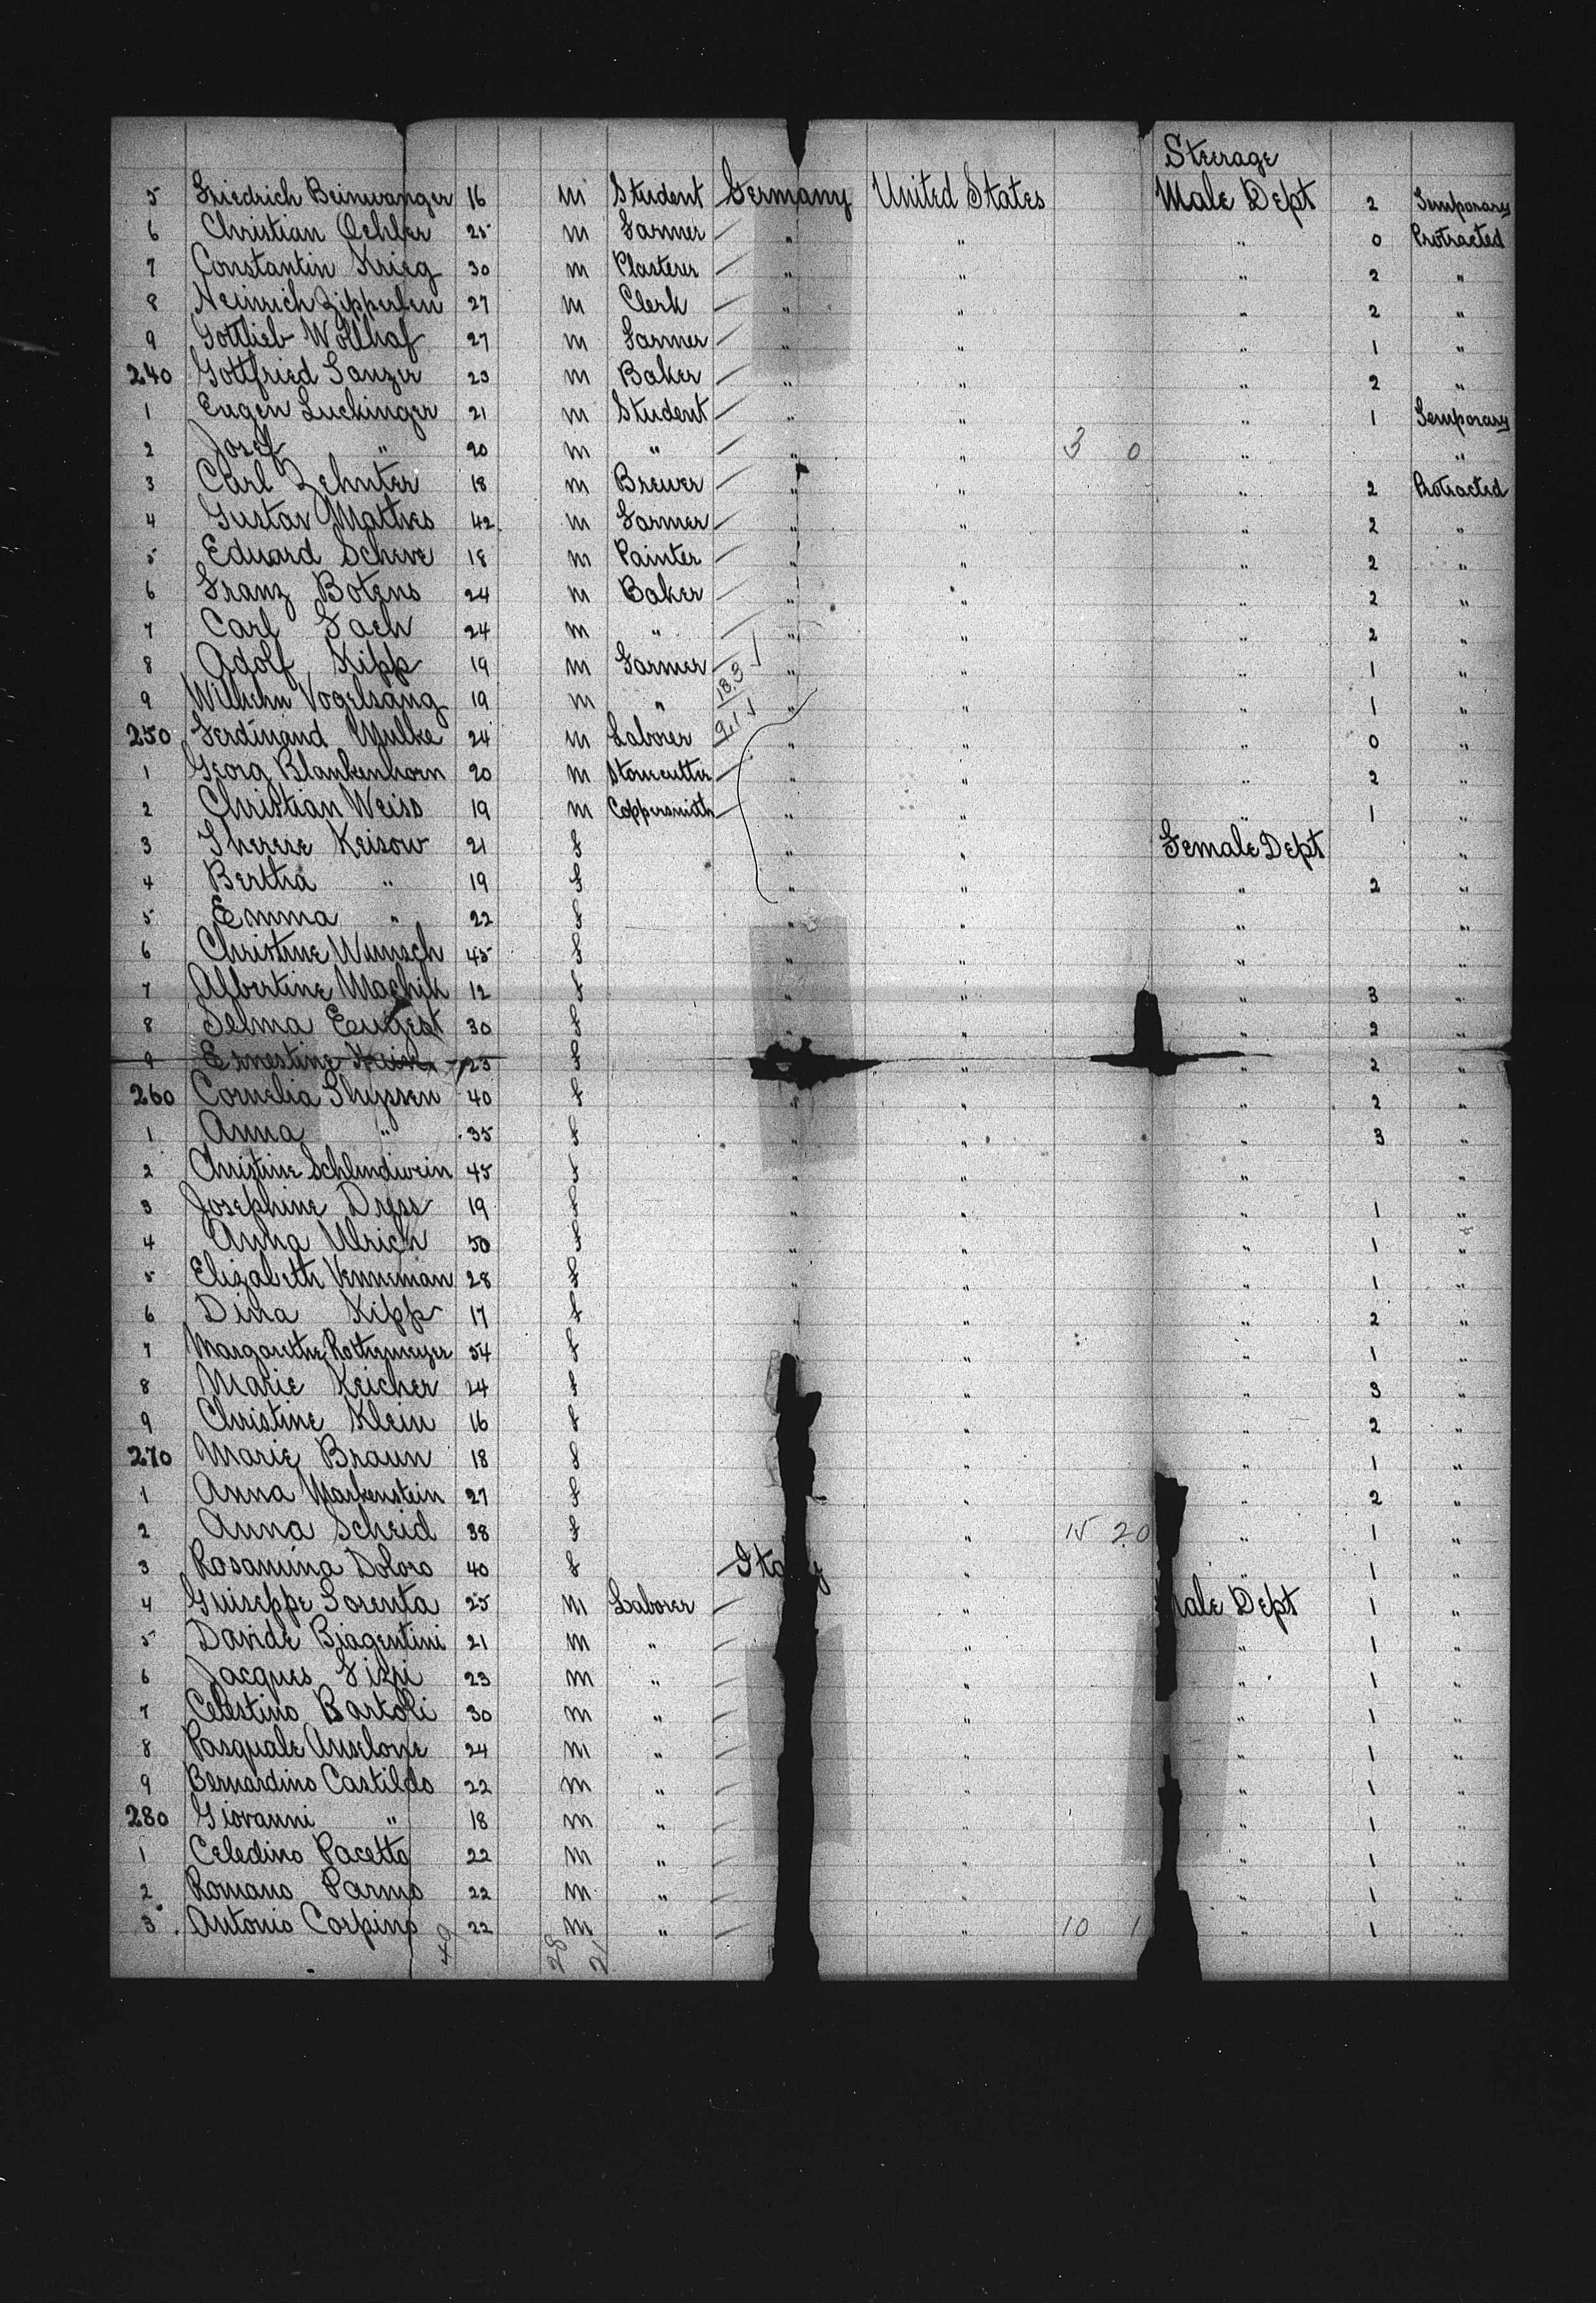 Steerage
5 Friedrich Beinwanger 16 m Student Germany United States Male Dept 2 Temporary
6 Christian Oehler 25 m Farmer " " " 0 Protracted
7 Constantin Krieg 30 m Plasterer " " " 2 "
8 Heinrich Zipperlen 27 m Clerk " " " 2 "
9 Gottlieb Wollhaf 27 m Farmer " " " 1 "
240 Gottfried Sanzer 23 m Baker " " " 2 "
1 Eugen Luckinger 21 m Student " " " 1 Temporary
2 Josef " 20 m " " " 3 0 " "
3 Carl Zehnter 18 m Brewer " " " 2 Protracted
4 Gustav Mathes 42 m Farmer " " " 2 "
5 Eduard Scheve 18 m Painter " " " 2 "
6 Franz Botens 24 m Baker " " " 2 "
7 Carl Fach 24 m " " " " 2 "
8 Adolf Kipp 19 m Farmer " " " 1 "
9 Wilhelm Vogelsang 19 m " 18.3 " " " 1 "
250 Ferdinand Mulke 24 m Laborer " " " 0 "
1 Georg Blankenhorn 20 m Stonecutter " " " 2 "
2 Christian Weiss 19 m Coppersmith " " " 1 "
3 Therese Keisow 21 f " " Female Dept "
4 Bertha " 19 f " " " 2 "
5 Emma " 22 f " " " "
6 Christine Wunsch 45 f " " " "
7 Albertine Machik 12 f " " " 3 "
8 Selma 30 f " " " 2 "
9 Ernestine 23 f " " 2 "
260 Cornelia Thyssen 40 f " " " 2 "
1 Anna " 35 f " " " 3 "
2 Christine Schlindwein 45 f " " " "
3 Josephine Dress 19 f " " " 1 "
4 Anna Ulrich 50 f " " " 1 "
5 Elizabeth Venneman 28 f " " " 1 "
6 Dina Kipp 17 f " " " 2 "
7 Margarethe Rottemeyer 54 f " " 1 "
8 Marie Keicher 24 f " " 3 "
9 Christine Klein 16 f " " 2 "
270 Marie Braun 18 f " " 1 "
1 Anna Markenstein 27 f " " 2 "
2 Anna Scheid 38 f " 15 20 " 1 "
3 Rosamina Doloro 40 f Italy " " 1 "
4 Guiseppe Sorenta 25 m Laborer " Male Dept 1 "
5 Davide Biagentini 21 m " " " 1 "
6 Jacques 23 m " " " 1 "
7 Celestino Bartoli 30 m " " " 1 "
8 Pasquale Anselone 24 m " " " 1 "
9 Bernardino Castildo 22 m " " " 1 "
280 Giovanni " 18 m " " " 1 "
1 Celedino Pacetto 22 m " " " 1 "
2 Romano Parmo 22 m " " " 1 "
3 Antonio Carpino 22 m " " 10 1 " 1 "
49 28 21